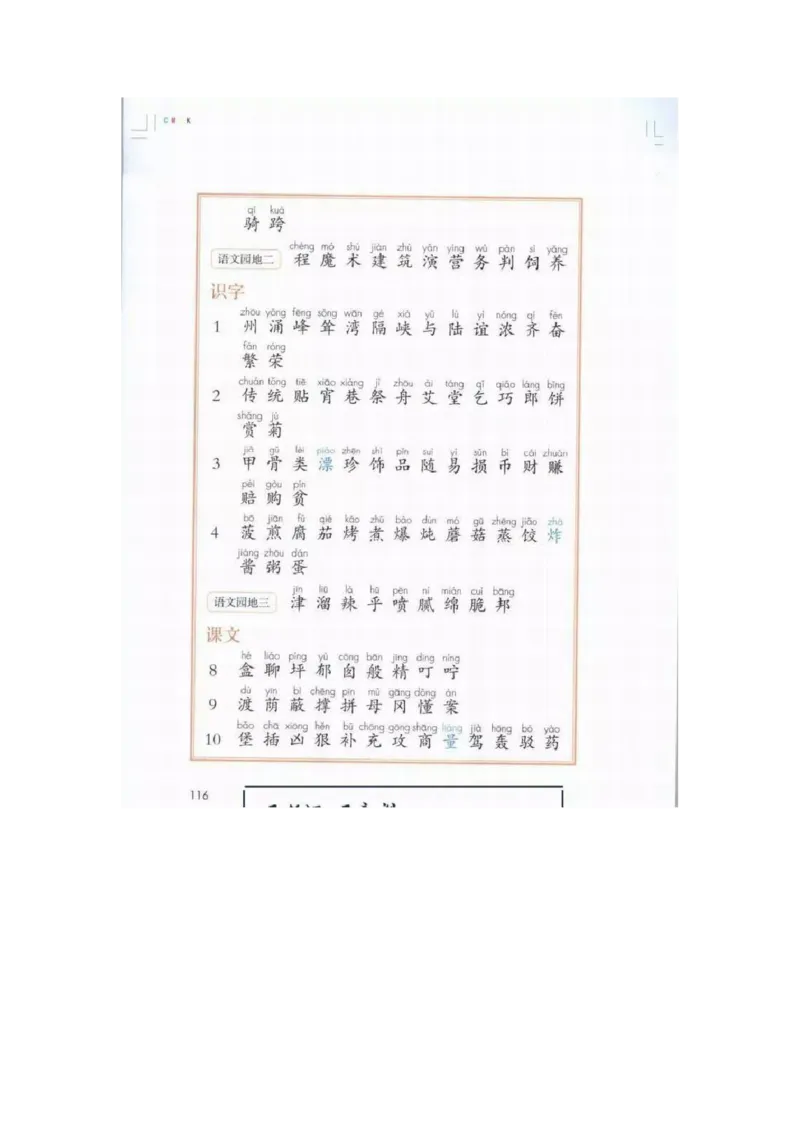 C M K
qí kuà
骑 跨
chéng mó shù jiàn zhù yǎn yíng wù pàn sì yǎng
语文园地二 程 魔 术 建 筑 演 营 务 判 饲 养
识字
zhōu yǒng fēng sǒng wān gé xiá yǔ lù yì nóng qí fèn
1 州 涌 峰 耸 湾 隔 峡 与 陆 谊 浓 齐 奋
fán róng
繁 荣
chuán tǒng tiē xiāo xiàng jì zhōu ài táng qǐ qiǎo láng bǐng
2 传 统 贴 宵 巷 祭 舟 艾 堂 乞 巧 郎 饼
shǎng jú
赏 菊
jiǎ gǔ lèi piào zhēn shì pǐn suí yì sǔn bì cái zhuàn
3 甲 骨 类 漂 珍 饰 品 随 易 损 币 财 赚
péi gòu pín
赔 购 贫
bō jiān fǔ qié kǎo zhǔ bào dùn mó gū zhēng jiǎo zhá
4 菠 煎 腐 茄 烤 煮 爆 炖 蘑 菇 蒸 饺 炸
jiàng zhōu dàn
酱 粥 蛋
jīn liū là hū pēn nì mián cuì bāng
语文园地三 津 溜 辣 乎 喷 腻 绵 脆 邦
课文
hé liáo píng yù cōng bān jīng dīng níng
8 盒 聊 坪 郁 囱 般 精 叮 咛
dù yīn bì chēng pīn mǔ gāng dǒng àn
9 渡 荫 蔽 撑 拼 母 冈 懂 案
bǎo chā xiōng hěn bǔ chōng gōng shāng liàng jià hōng bó yào
10 堡 插 凶 狠 补 充 攻 商 量 驾 轰 驳 药
116